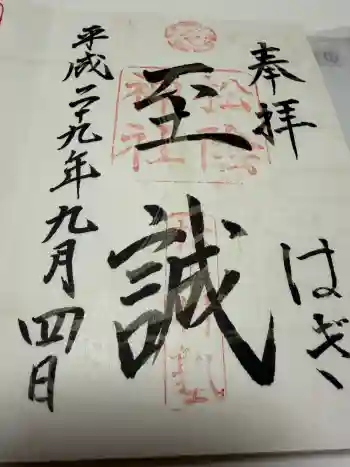 奉拝
はぎ
松陰
神社
至誠
平成二十九年九月四日